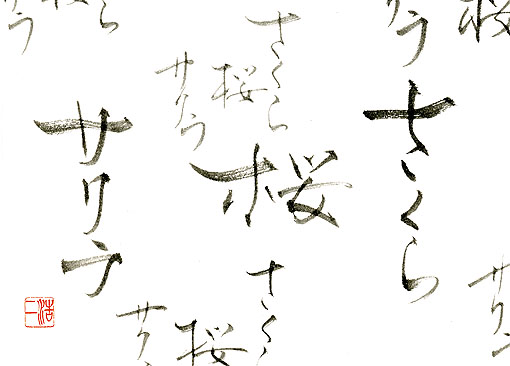 桜
クラ
さくら
サク
さくら
桜
サクラ
桜
さくら
桜
サクラ
サクラ
ら
クラ
浩二